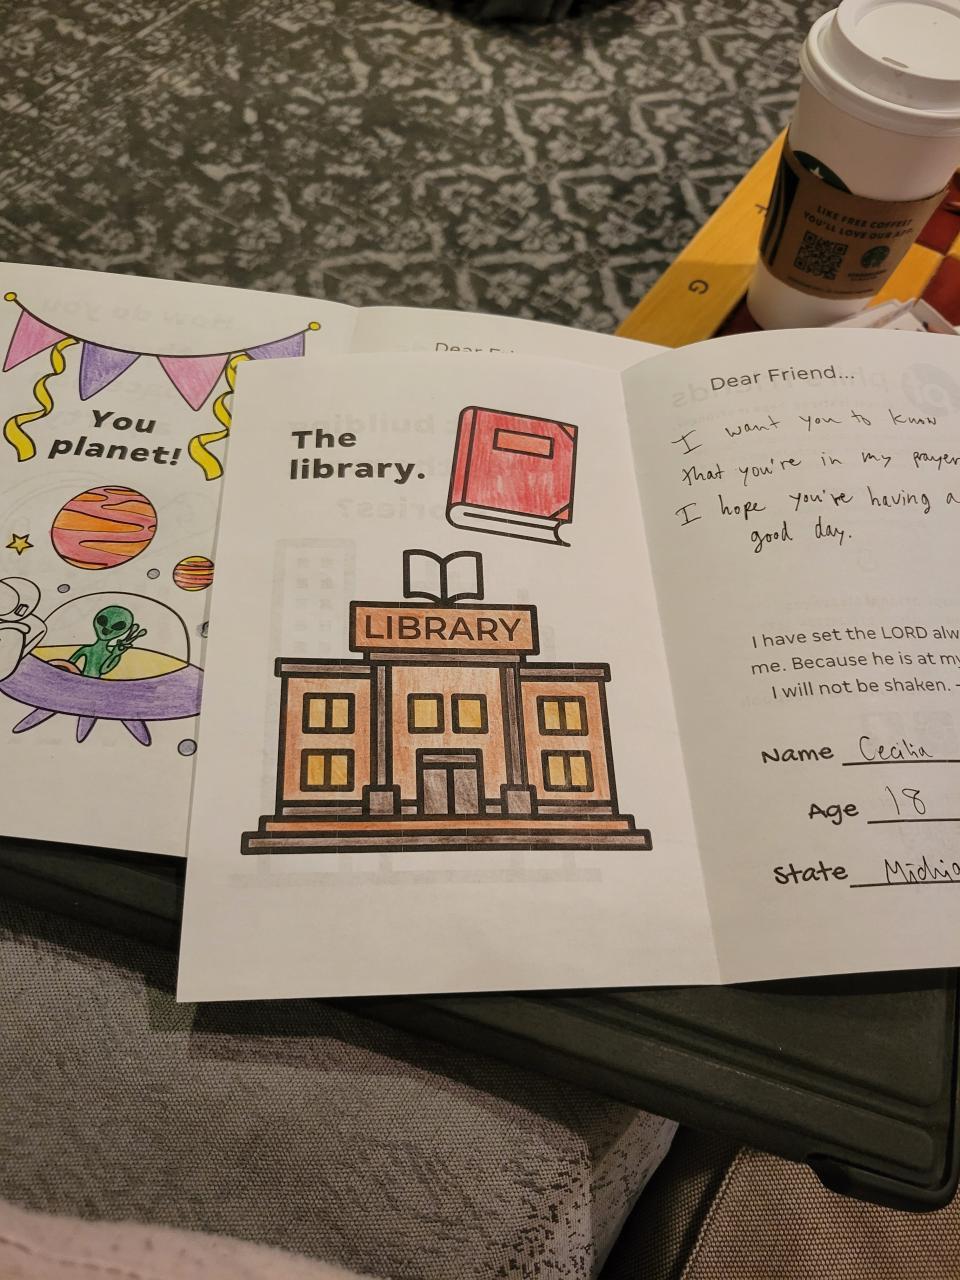 You
planet!
The
library.
LIBRARY
Dear Friend...
I want you to know
that you're in my prayer
I hope you're having a
good day.
I have set the LORD alw
me. Because he is at my
I will not be shaken. -
Name Cecilia
Age 18
State Michiga
Dear
LIKE FREE COFFEE?
YOU'LL LOVE OUR APP.
G
F